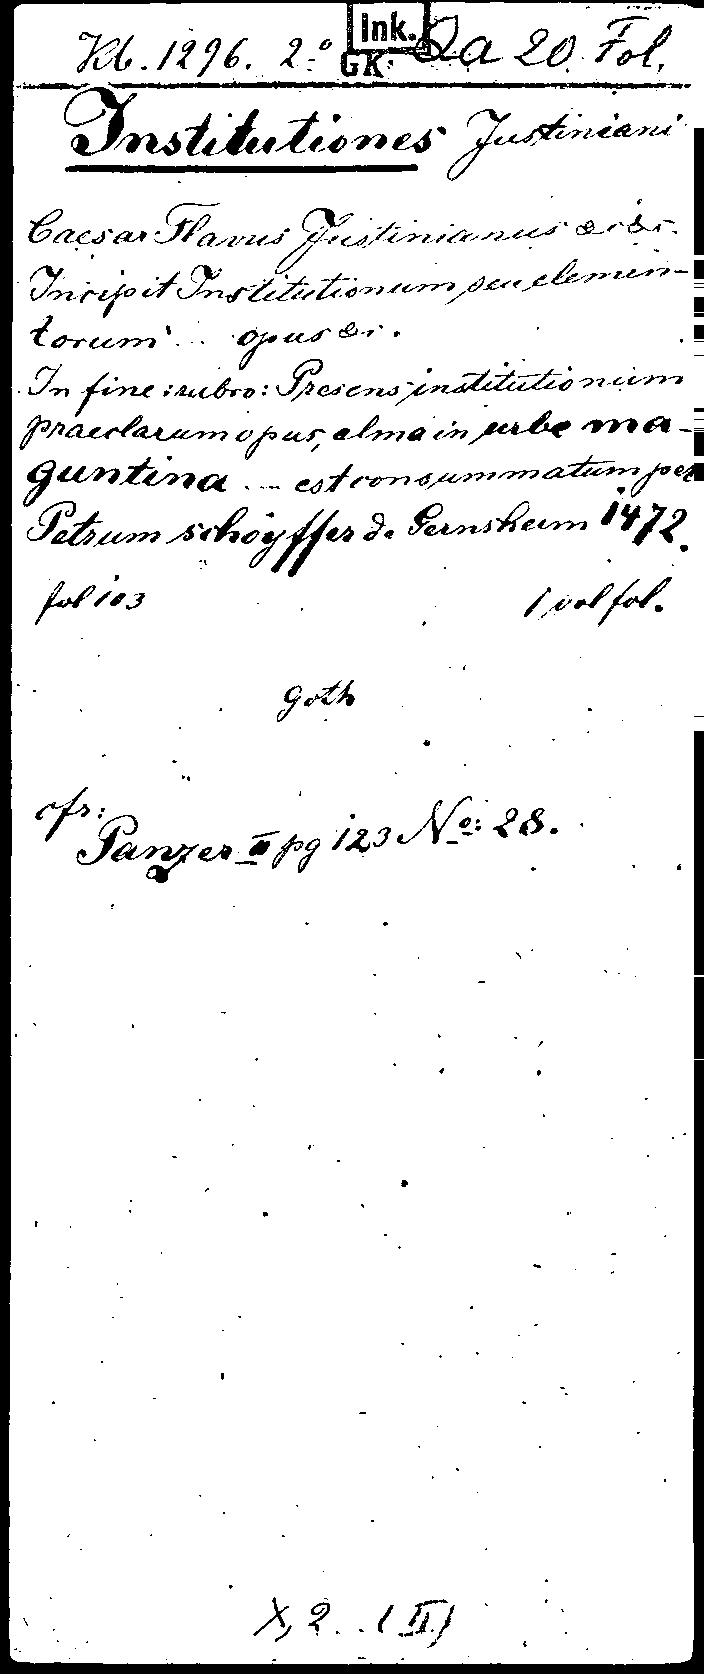 Kb. 1296. 2.º Ink. Qa 20. Fol.
GK
Institutiones Justiniani
Caesar Flavus Justinianus &c &c.
Incipit Institutionum seu elemen-
torum ... opus &c.
In fine :rubro: Presens institutionum
praeclarum opus, alma in urbe ma-
guntina ... est consummatum per
Petrum schoyffer de Gernsheim 1472.
fol 103 1 vol fol.
Goth
cfr:
Panzer II pg 123 No: 28.
X, 2. . (II)